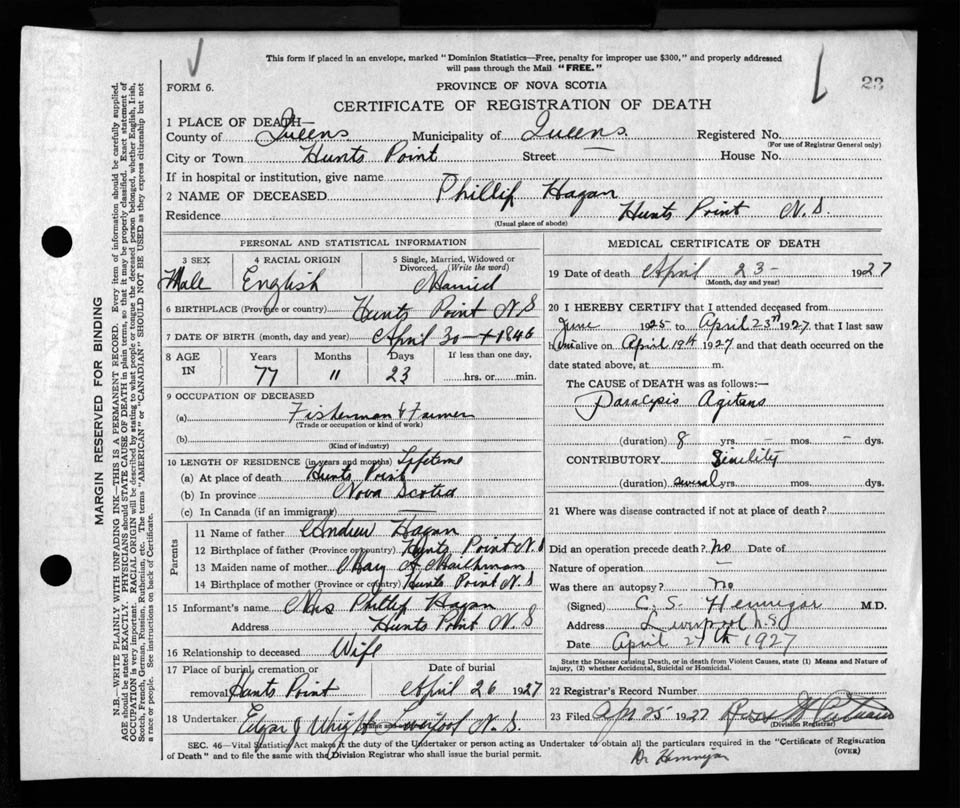 This form if placed in an envelope, marked "Dominion Statistics—Free, penalty for improper use $300," and properly addressed
will pass through the Mail "FREE."
FORM 6.
PROVINCE OF NOVA SCOTIA
23
CERTIFICATE OF REGISTRATION OF DEATH
1 PLACE OF DEATH—
County of Queens Municipality of Queens Registered No.
(For use of Registrar General only)
City or Town Hunts Point Street — House No.
If in hospital or institution, give name
2 NAME OF DECEASED Phillip Hagan
Residence Hunts Point N.S.
(Usual place of abode)
PERSONAL AND STATISTICAL INFORMATION
3 SEX 4 RACIAL ORIGIN 5 Single, Married, Widowed or
Divorced (Write the word)
Male English Married
6 BIRTHPLACE (Province or country) Hunts Point N S
7 DATE OF BIRTH (month, day and year) April 30 – 1846
8 AGE IN Years Months Days If less than one day,
77 11 23 hrs. or min.
9 OCCUPATION OF DECEASED
(a) Fisherman & Farmer
(Trade or occupation or kind of work)
(b)
(Kind of industry)
10 LENGTH OF RESIDENCE (in years and months) Lifetime
(a) At place of death Hunts Point
(b) In province Nova Scotia
(c) In Canada (if an immigrant) —
Parents
11 Name of father Andrew Hagan
12 Birthplace of father (Province or country) Hunts Point N.S
13 Maiden name of mother Mary A
14 Birthplace of mother (Province or country) Hunts Point N.S
15 Informant's name Mrs Phillip Hagan
Address Hunts Point N. S
16 Relationship to deceased Wife
17 Place of burial, cremation or Date of burial
removal Hunts Point April 26 1927
18 Undertaker Edgar J Wright Liverpool N. S.
MEDICAL CERTIFICATE OF DEATH
19 Date of death April 23 - 1927
(Month, day and year)
20 I HEREBY CERTIFY that I attended deceased from
June 1925 to April 23rd 1927 that I last saw
him alive on April 19th 1927 and that death occurred on the
date stated above, at m.
The CAUSE OF DEATH was as follows:—
Paralysis Agitans
(duration) 8 yrs. - mos. - dys.
CONTRIBUTORY Senility
(duration) several yrs. mos. dys.
21 Where was disease contracted if not at place of death?
Did an operation precede death? no Date of
Nature of operation —
Was there an autopsy? no
(Signed) C. S. Hennigar M.D.
Address Liverpool N.S
Date April 27th 1927
State the Disease causing Death, or in Death from Violent Causes, state (1) Means and Nature of
Injury, (2) whether Accidental, Suicidal or Homicidal.
22 Registrar's Record Number
23 Filed Apr 25 1927
(Division Registrar)
SEC. 46—Vital Statistics Act makes it the duty of the Undertaker or person acting as Undertaker to obtain all the particulars required in the "Certificate of Registration
of Death" and to file the same with the Division Registrar who shall issue the burial permit.
(OVER)
Dr Hennigar
MARGIN RESERVED FOR BINDING
N.B.—WRITE PLAINLY WITH UNFADING INK—THIS IS A PERMANENT RECORD. Every item of information should be carefully supplied.
AGE should be stated EXACTLY. PHYSICIANS should STATE CAUSE OF DEATH in plain terms, so that it may be properly classified. Exact statement of
OCCUPATION is very important. RACIAL ORIGIN will be described by stating to what people or tongue the deceased person belonged, whether English, Irish,
Scotch, French, German, Russian, Ruthenian, etc. The terms "AMERICAN" or "CANADIAN" SHOULD NOT BE USED as they express citizenship but not
a race or people. See instructions on back of Certificate.